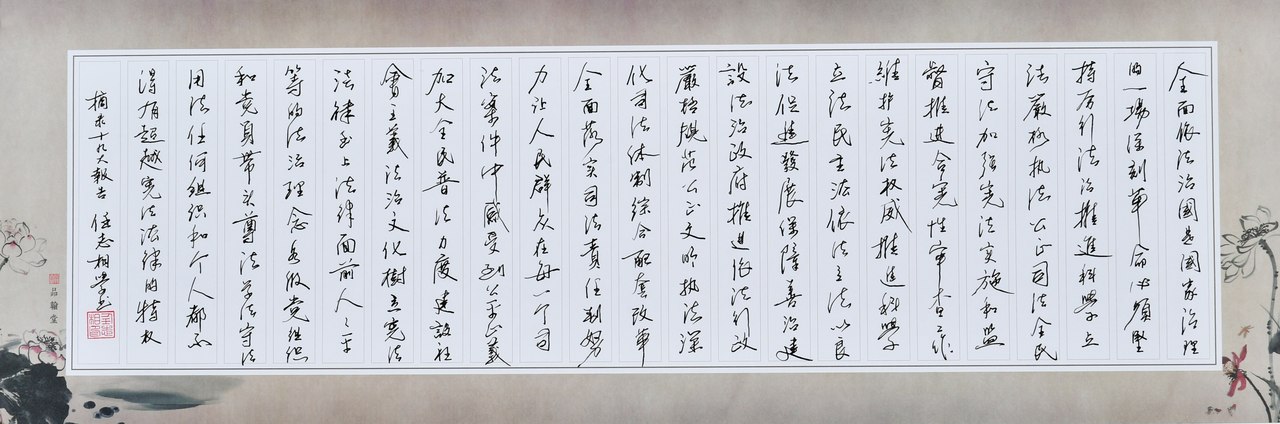 全面依法治國是國家治理
的一場深刻革命必須堅
持厉行法治推進科學立
法嚴格执法公正司法全民
守法加强宪法实施和监
督推進合憲性审查工作
維护宪法权威推进科學
立法民主依法立法以良
法促進發展保障善治建
設法治政府推進依法行政
嚴格規范公正文明执法深
化司法体制综合配套改革
全面落实司法责任制努
力让人民群众在每一个司
法案件中感受到公平正義
加大全民普法力度建設社
會主義法治文化樹立宪法
法律至上法律面前人人平
等的法治理念各级党组织
和党員带头尊法学法守法
用法任何组织和个人都不
得有超越宪法法律的特权
摘录十九大報告 任志相學書
品翰堂